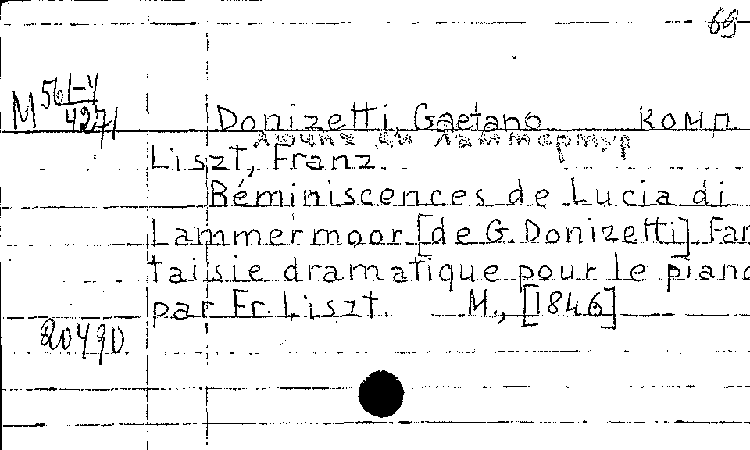 69
М 561-4
4271
Donizetti, Gaetano комп
Лючия ди Ламмермур
Liszt, Franz.
Réminiscences de Lucia di
Lammermoor [de G. Donizetti]. Fan
taisie dramatique pour le piano
par Fr. Liszt. M., [1846]
20490